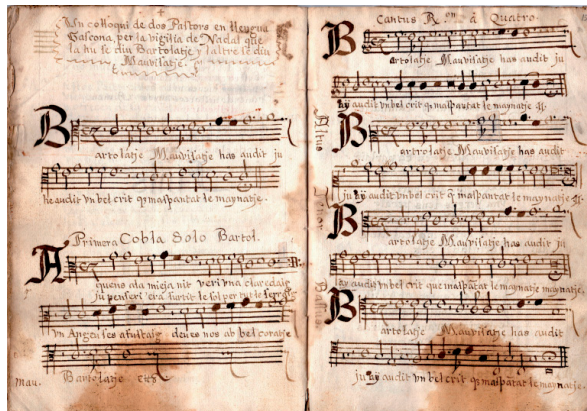 Un colloqui de dos Pastors en llengua
Gascona, per la vigilia de Nadal que
la hu se diu Bartolatje y laltre se diu
Mauvisatje.
Bartolatje Mauvisatje has audit ju
he audit vn bel crit q̃ maspantat le maynatje.
Primera Cobla Solo Bartol.
Aqueno ala mieja nit veri vna claredat
ju penseri era surtit le sol per tut le
vn Angeu ses afustat deves nos ab bel coratje
mau. Bartolatje etc̃
Cantus Rᵒⁿ â Quatro
Bartolatje Mauvisatje has audit ju
ay audit vn bel crit q̃ maspantat le maynatje ij.
Altus
Bartrolatje Mauvisatje has audit
ju ay audit vn bel crit q̃ maspantat le maynatje ij.
Tenor
Bartolatje Mauvisatje has audit ju
ay audit vn bel crit que maspatat le maynatje maynatje.
Bassus
Bartolatje Mauvisatje has audit
ju ay audit vn bel crit q̃ maspãtat le maynatje.